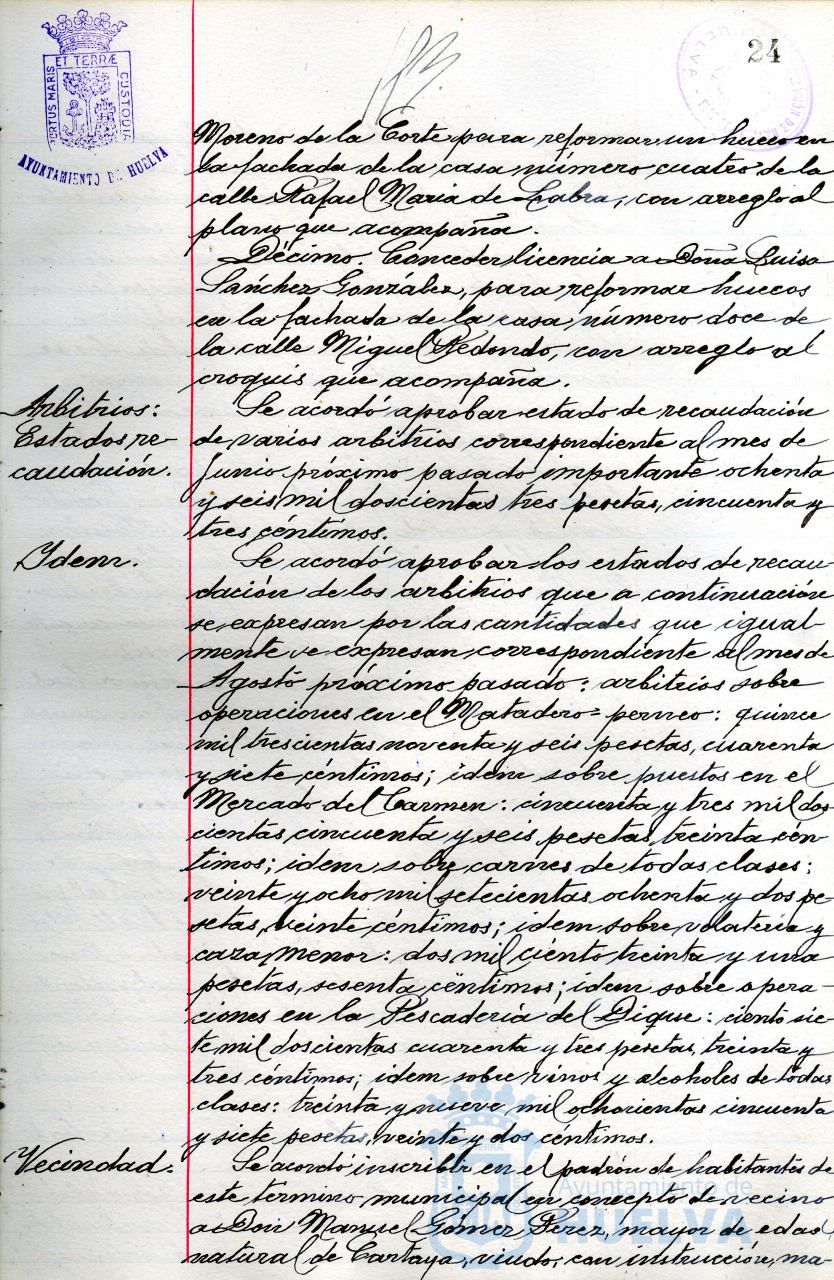 24
PORTUS MARIS ET TERRÆ CUSTODIA
AYUNTAMIENTO DE HUELVA
Moreno de la Corte para reformar un hueco en
la fachada de la casa número cuatro de la
calle Rafael Maria de Labra, con arreglo al
plano que acompaña.
Décimo. Conceder licencia a Doña Luisa
Sánchez González, para reformar huecos
en la fachada de la casa número doce de
la calle Miguel Redondo, con arreglo al
croquis que acompaña.
Arbitrios:
Estados re-
caudación.
Se acordó aprobar estado de recaudación
de varios arbitrios correspondiente al mes de
Junio próximo pasado importante ochenta
y seis mil doscientas tres pesetas, cincuenta y
tres céntimos.
Idem.
Se acordó aprobar los estados de recau-
dación de los arbitrios que a continuación
se expresan por las cantidades que igual-
mente se expresan correspondiente al mes de
Agosto próximo pasado: arbitrios sobre
operaciones en el Matadero= perneo: quince
mil trescientas noventa y seis pesetas, cuarenta
y siete céntimos; idem sobre puestos en el
Mercado del Carmen: cincuenta y tres mil dos-
cientas cincuenta y seis pesetas, treinta cén-
timos; idem sobre carnes de todas clases:
veinte y ocho mil setecientas ochenta y dos pe-
setas, veinte céntimos; idem sobre volateria y
caza menor: dos mil ciento treinta y una
pesetas, sesenta céntimos; idem sobre opera-
ciones en la Pescadería del Dique: ciento sie-
te mil doscientas cuarenta y tres pesetas, treinta y
tres céntimos; idem sobre vinos y alcoholes de todas
clases: treinta y nueve mil ochocientas cincuenta
y siete pesetas, veinte y dos céntimos.
Vecindad.
Se acordó inscribir en el padrón de habitantes de
este termino municipal en concepto de vecino
a Don Manuel Gómez Pérez, mayor de edad,
natural de Cartaya, viudo, con instrucción, ma-
Ayuntamiento de
HUELVA